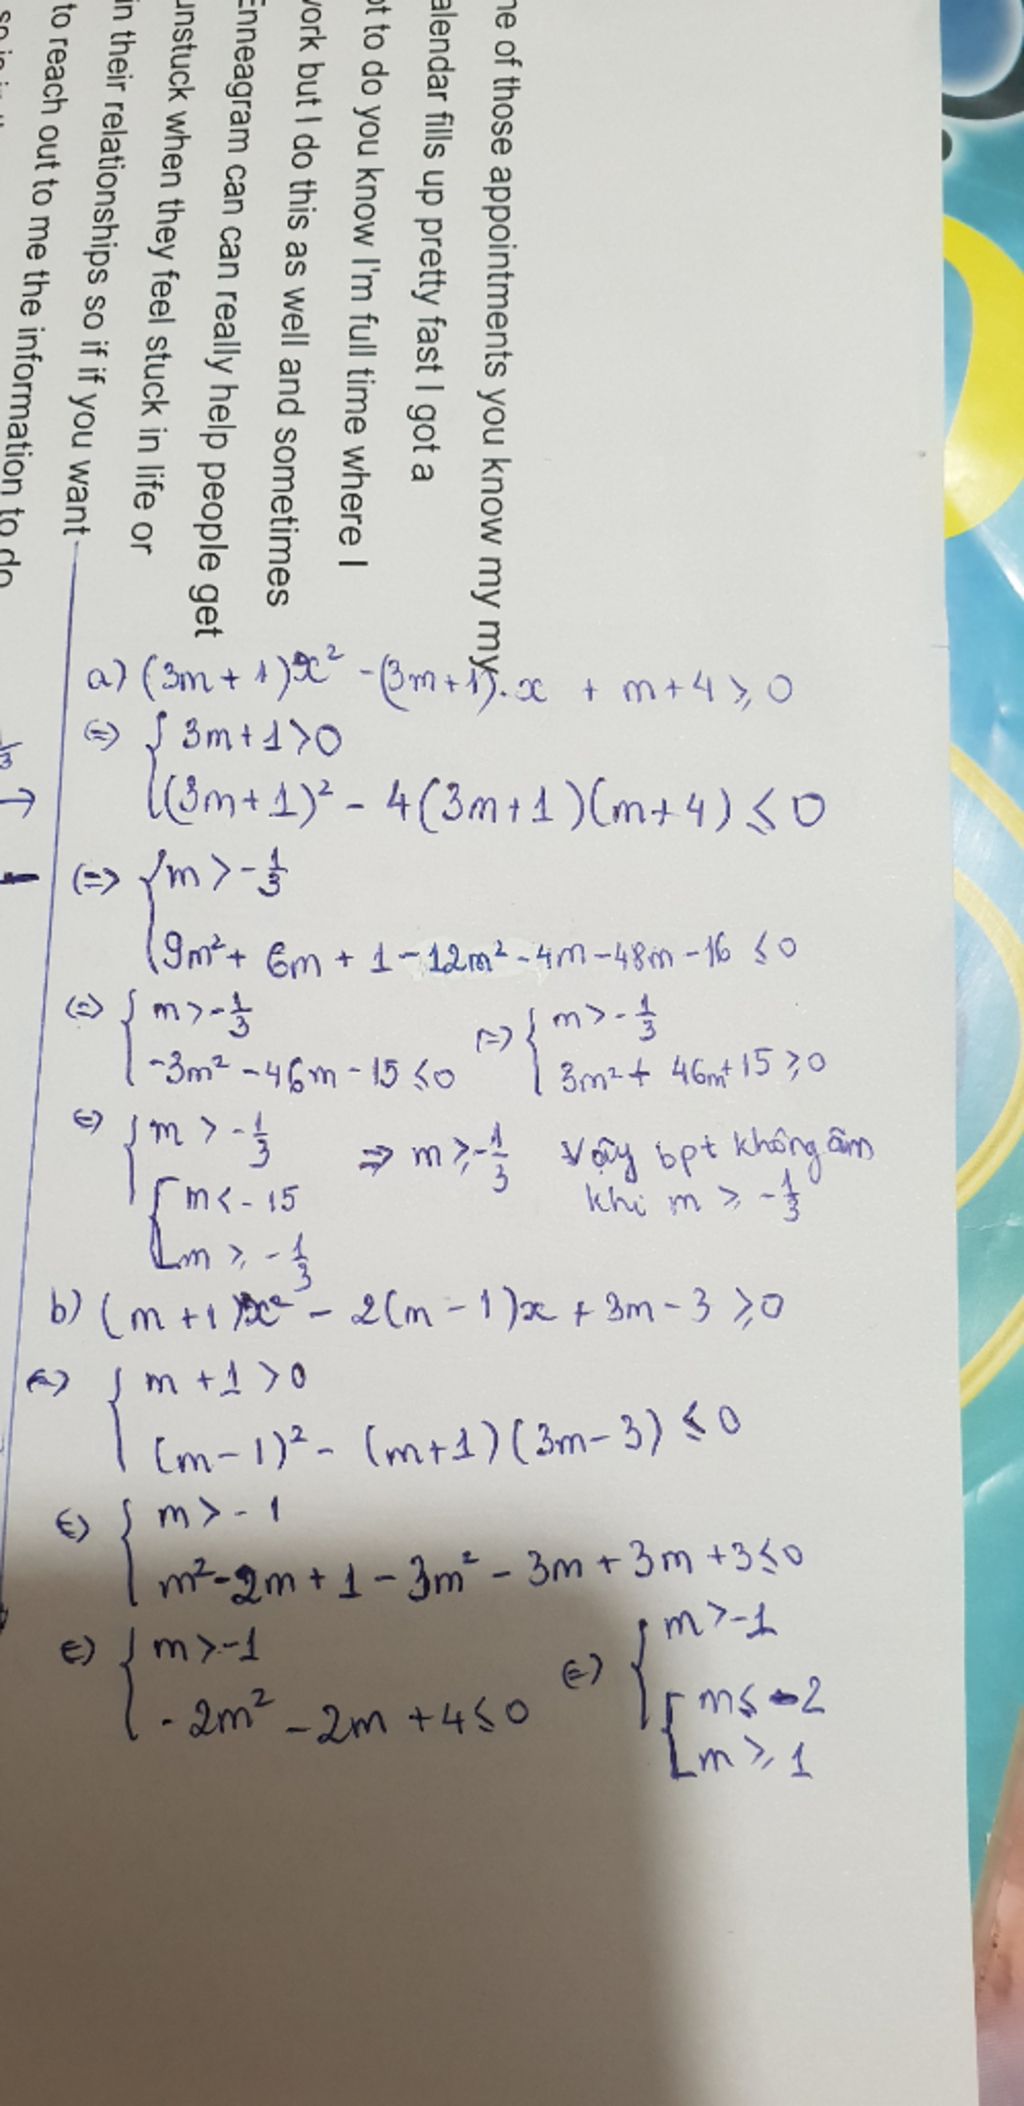 ne of those appointments you know my my
alendar fills up pretty fast I got a
ot to do you know I'm full time where I
vork but I do this as well and sometimes
Enneagram can can really help people get
unstuck when they feel stuck in life or
in their relationships so if if you want
to reach out to me the information to do
a) (3m + 1)x² - (3m+1).x + m+4 ⩾ 0
⇔ { 3m+1>0
(3m+1)² - 4(3m+1)(m+4) ⩽ 0
⇔ { m > -1/3
9m² + 6m + 1 - 12m² - 4m - 48m - 16 ⩽ 0
⇔ { m > -1/3 ⇔ { m > -1/3
-3m² - 46m - 15 ⩽ 0 3m² + 46m + 15 ⩾ 0
⇔ { m > -1/3 ⇒ m ⩾ -1/3 Vậy bpt không âm
[ m < -15 khi m ⩾ -1/3
m ⩾ -1/3
b) (m+1)x² - 2(m-1)x + 3m - 3 ⩾ 0
⇔ { m + 1 > 0
(m-1)² - (m+1)(3m-3) ⩽ 0
⇔ { m > -1
m² - 2m + 1 - 3m² - 3m + 3m + 3 ⩽ 0
⇔ { m > -1 ⇔ { m > -1
-2m² - 2m + 4 ⩽ 0 [ m ⩽ -2
m ⩾ 1